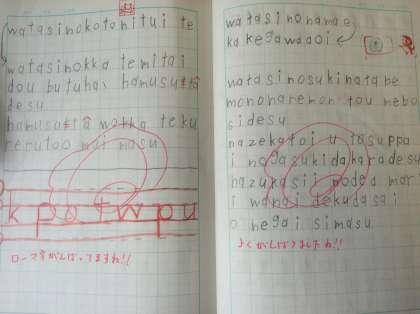 watasinokotonitui te
watasinokka temitai
dou butuha, hamusuta
desu
hamusuta wokka teku
rerutoo moi masu
k p o t w p u
ローマ字がんばってますね!!
watasinonamae
ka kegawaaoi
watasinosukinatabe
monoharemon tou mebo
sidesu
nazekatoi u tosuppa
i nogasukidakaradesu
hazukasii nodea marri
i wanai dekudasai
o negai simasu
よくがんばりましたね!!